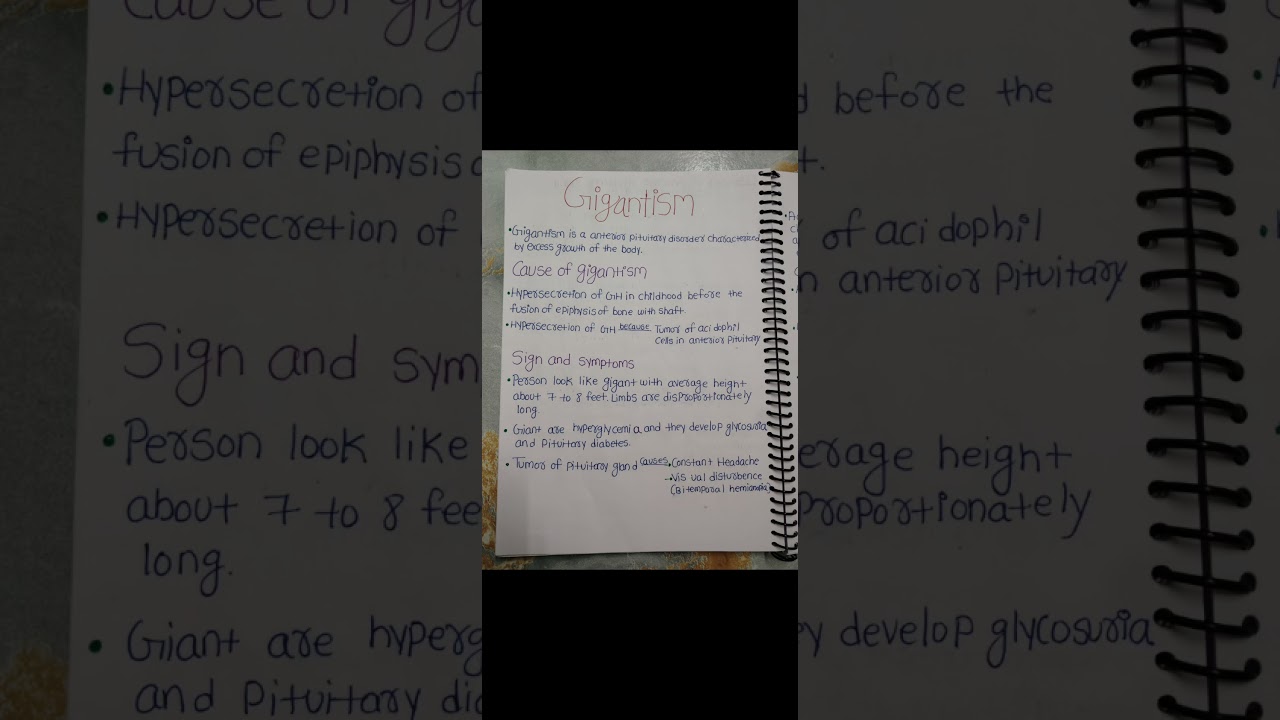 Gigantism
•Gigantism is a anterior pituitary disorder characterized
by excess growth of the body.
Cause of gigantism
•Hypersecretion of GH in childhood before the
fusion of epiphysis of bone with shaft.
•Hypersecretion of GH because Tumor of acidophil
cells in anterior pituitary
Sign and symptoms
•Person look like gigant with average height
about 7 to 8 feet. Limbs are disproportionately
long.
•Giant are hyperglycemia and they develop glycosuria
and Pituitary diabetes.
•Tumor of pituitary gland causes •Constant Headache
→Visual disturbence
(Bitemporal hemianopia)